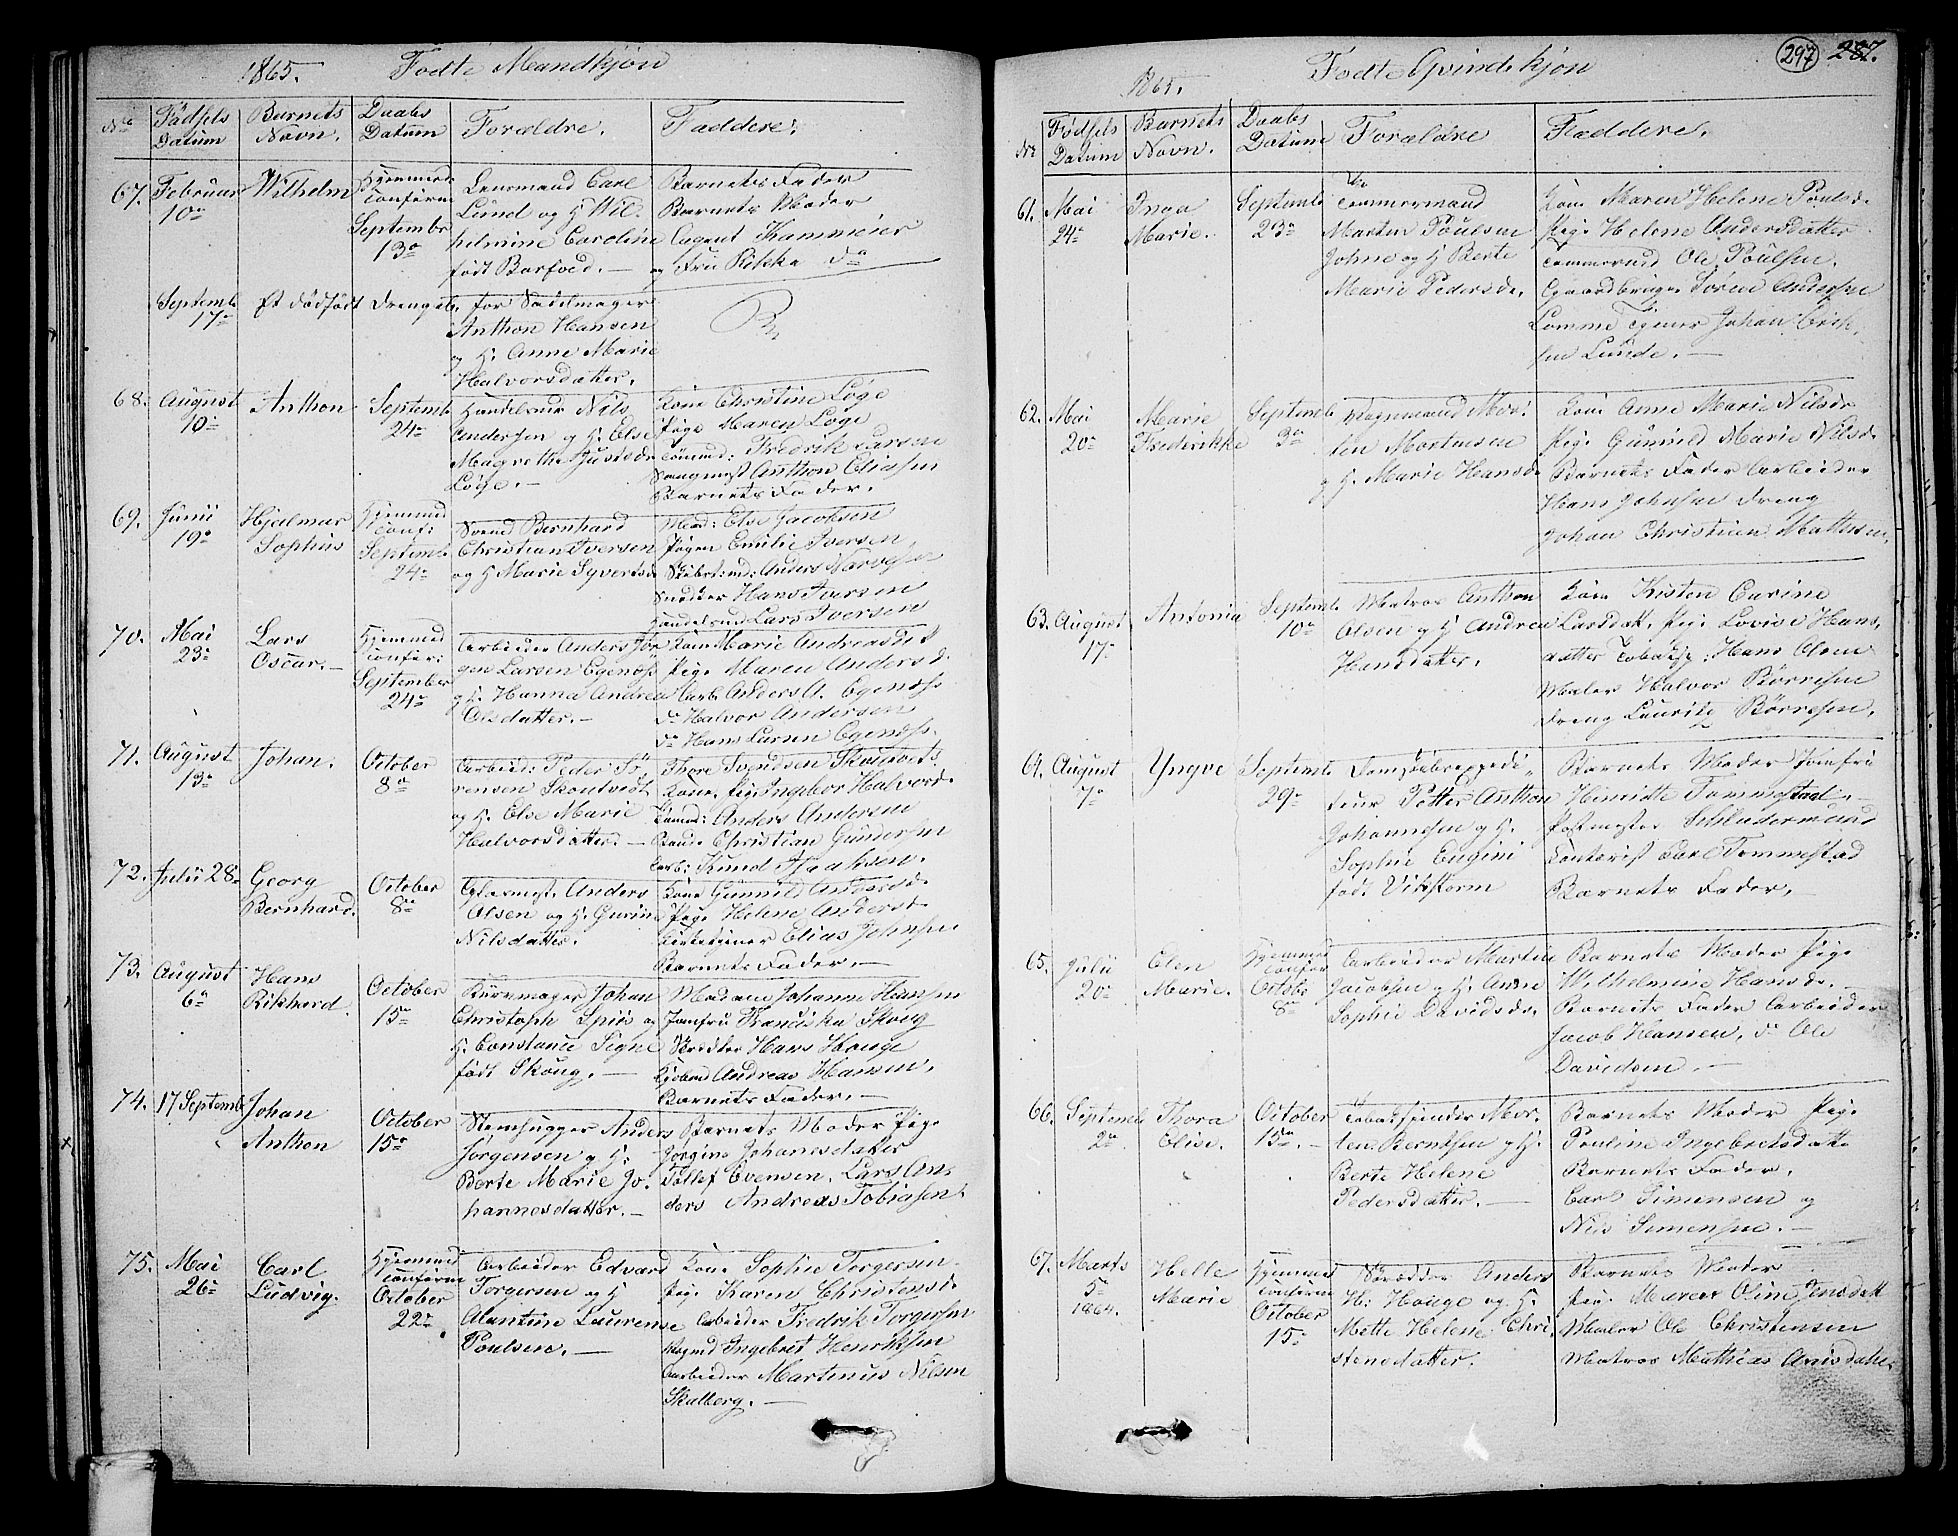 1865. Födte Mandkjön
No Födsels Datum Barnets Navn. Daabs Datum Forældre. Faddere.
67. Februar 10de Wilhelm Hjemmed: Conferm Septembr 13de
Lensmand Carl
Lund og H Wil-
helmine Caroline
födt Barfoed. —
Barnets Fader
Barnets Moder
Agent Kammeier
og Fru Rikka do
Septemb 17de Et dödfödt Drengeb.
for Sadelmager
Anthon Hansen
og H. Anne Marie
Halvorsdatter.
68. August 10de Anthon Septemb 24de
Handelsmd Nils
Andersen og H. Else
Magrethe Justsdr
Löge. —
Kone Christine Löge
Pige Maren Löge
Tömmd: Fredrik Larsen
Anthon Eliasen
Barnets Fader.
69. Junii 19de Hjalmar Sophus Hjemmed Conf: Septemb 24de
Svend Bernhard
Christian Iversen
og H Marie Syvertsd
Mad: Else Jacobsen
Pigen Emilie Iversen,
Skibstmd: Anders
Snedker Hans Iversen
Handelsmd Lars Iversen
70. Mai 23de Lars Oscar. — Hjemmed Confer: September 24de
Arbeider Anders Jör
gen Larsen Egenæss
og H. Hanna Andrea
Olsdatter. —
Kone Marie Andreasdet
Pige Maren Andersd.
Arb. Anders A. Egenæss
do Halvor Andersen
do Hans Larsen Egenæss.
71. August 13de Johan. October 8de
Arbeid: Peder Sö
rensen Skontvedt
og H. Else Marie
Halvorsdatter. —
Thore Svendsen
Kone, Pige Ingebor Halvord.
Anders Andersen
Christian Gundersen
Arb: Knud Isaksen.
72. Julii 28de Georg Bernhard. October 8de
Glasmest. Anders
Olsen og H. Gurine
Nilsdatter.
Kone Gunnild Andersd.
Pige Helene Andersd.
Kirketjener Elias Johnsen
Barnets Fader. —
73. August 6de Hans Rikhard. October 15de
Johan
Christoph Spiis og
H. Constance Signe
födt Skoug. —
Madam Johanne Hansen
Jomfru Franciska Skoug
Skrædder Hans Houge
Andreas Hansen,
Barnets Fader. —
74. 17 Septemb Johan Anthon October 15de
Stenhugger Anders
Jörgensen og H.
Berte Marie Jo-
hannesdatter. —
Barnets Moder Pige
Jörgine Johanesdatter
Tollef Evensen, Lars An-
ders Andreas Tobiasen.
75. Mai 26de Carl Ludvig. Hjemmed Conferm October 22de
Arbeider Edvard
Torgersen og H
Alentine Laurense
Poulsen. —
Kone Sophie Torgersen
Pige Karen Christensd.
Arbeider Fredrik Torgersen
Ingebret Henriksen
Arbeider Martinus Nilsen
Skalberg. —
297 287.
1865. Födte Qvindekjön
No Födsels Datum Barnets Navn. Daabs Datum Forældre Faddere.
61. Mai 24de Inga Marie. Septemb 23de
Tömmermand
Martin Poulsen
Johne og H Berte
Marie Pedersdr.
Kone Maren Helene Poulsd.
Pige Helene Andersdatter
Tömmermd Ole Poulsen.
Gaardbruger Sören Andersen
Johan Erik-
sen Lunde. —
62. Mai 20de Marie Frederikke Septemb 3de
Mor-
ten Mortensen
og H. Marie Hansd.
Kone Anne Marie Nilsdr
Pige Gunnild Marie Nilsd.
Barnets Fader Arbeider
Hans Johnsen Dreng
Johan Christian Mathisen.
63. August 17de Antonia Septemb 10de
Matros Anthon
Olsen og H Andrea
Hansdatter.
Kone Kisten Carine
Larsdatt, Pige Lovise Hans-
datter Hans Olsen
Maler Halvor Börresen
Dreng Lauritz Börresen.
64. August 7de Yngve Septemb 29de
Dampskibsexpedi-
teur Petter Anthon
Johannesen og H.
Sophie Eugini
födt Vikstrøm
Barnets Moder Jomfru
Henriette Tommestad —
Postmester Schludermand
Contorist Carl Tommestad
Barnets Fader. —
65. Julii 20de Elen Marie. Hjemmed Confer Octobr 8de
Arbeider Martin
Jacobsen og H. Anne
Sophie Davidsdr.
Barnets Moder Pige
Wilhelmine Hansd. —
Barnets Fader Arbeider
Jacob Hansen, do Ole
Davidsen —
66. Septemb 2de Thora Elise. October 15de —
Tobaksspinder Mor-
ten Berntsen og H.
Berte Helene
Pedersdatter. —
Barnets Moder Pige
Pouline Ingebretsdatter
Barnets Fader.
Carl Simensen og
Nils Simensen. —
67. Marts 5de 1864. Helle Marie Hjemmed Conferm October 15de
Skrædder Anders
H: Houge og H.
Mette Helene Chri-
stensdatter.
Barnets Moder
Pige Maren Oline Jensdatt
Maler Ole Christensen
Matros Mathias